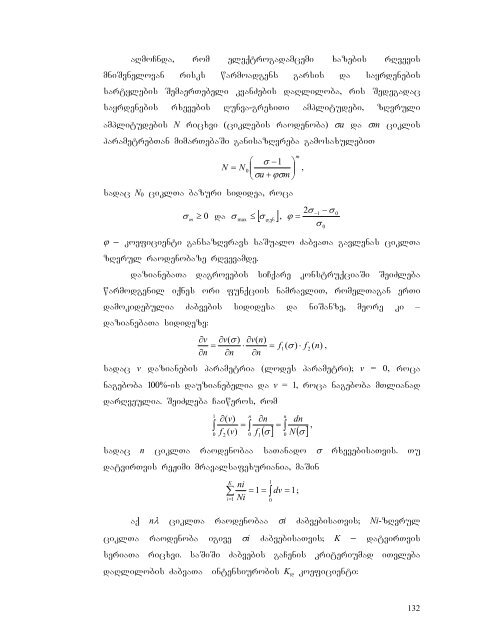 აღმოჩნდა, რომ ელექტროგადამცემი ხაზების რღვევის
მნიშვნელოვან რისკს წარმოადგენს გარსის და საყრდენების
სარტყლების შემაერთებელი კვანძების დაღლილობა, რის შედეგადაც
საყრდენების რხევების ღუნვა-გრეხითი ამპლიტუდები, ზღვრული
ამპლიტუდების N რიცხვი (ციკლების რაოდენობა) σu და σm ციკლის
პარამეტრებთან მიმართებაში განისაზღვრება გამოსახულებით
N = N₀((σ − 1)/(σu + φσm))ᵐ,
სადაც N₀ ციკლთა ბაზური სიდიდეა, როცა
σₘ ≥ 0 და σmax ≤ [σდ.წ.], φ = (2σ₋₁ − σ₀)/σ₀
φ – კოეფიციენტი განსაზღვრავს საშუალო ძაბვათა გავლენას ციკლთა
ზღვრულ რაოდენობაზე რღვევამდე.
დაზიანებათა დაგროვების სიჩქარე კონსტრუქციაში შეიძლება
წარმოდგენილ იქნეს ორი ფუნქციის ნამრავლით, რომელთაგან ერთი
დამოკიდებულია ძაბვების სიდიდესა და ნიშანზე, მეორე კი –
დაზიანებათა სიდიდეზე:
∂v/∂n = ∂v(σ)/∂n · ∂v(n)/∂n = f₁(σ) · f₂(n),
სადაც v დაზიანების პარამეტრია (ლოდეს პარამეტრი); v = 0, როცა
ნაგებობა 100%-ის დაუზიანებელია და v = 1, როცა ნაგებობა მთლიანად
დარღვეულია. შეიძლება ჩაიწეროს, რომ
∫₀¹ ∂(v)/f₂(v) = ∫₀ⁿ ∂n/f₁[σ] = ∫₀ⁿ dn/N[σ],
სადაც n ციკლთა რაოდენობაა სათანადო σ რხევებისათვის. თუ
დატვირთვის რეჟიმი მრავალსაფეხურიანია, მაშინ
∑ᵢ₌₁ᴷ ni/Ni = 1 = ∫₀¹ dv = 1;
აქ nλ ციკლთა რაოდენობაა σi ძაბვებისათვის; Ni-ზღვრულ
ციკლთა რაოდენობა იგივე σi ძაბვებისათვის; K – დატვირთვის
სერიათა რიცხვი. საშიში ძაბვების გაჩენის კრიტერიუმად ითვლება
დაღლილობის ძაბვათა ინტენსიურობის კოეფიციენტი:
132